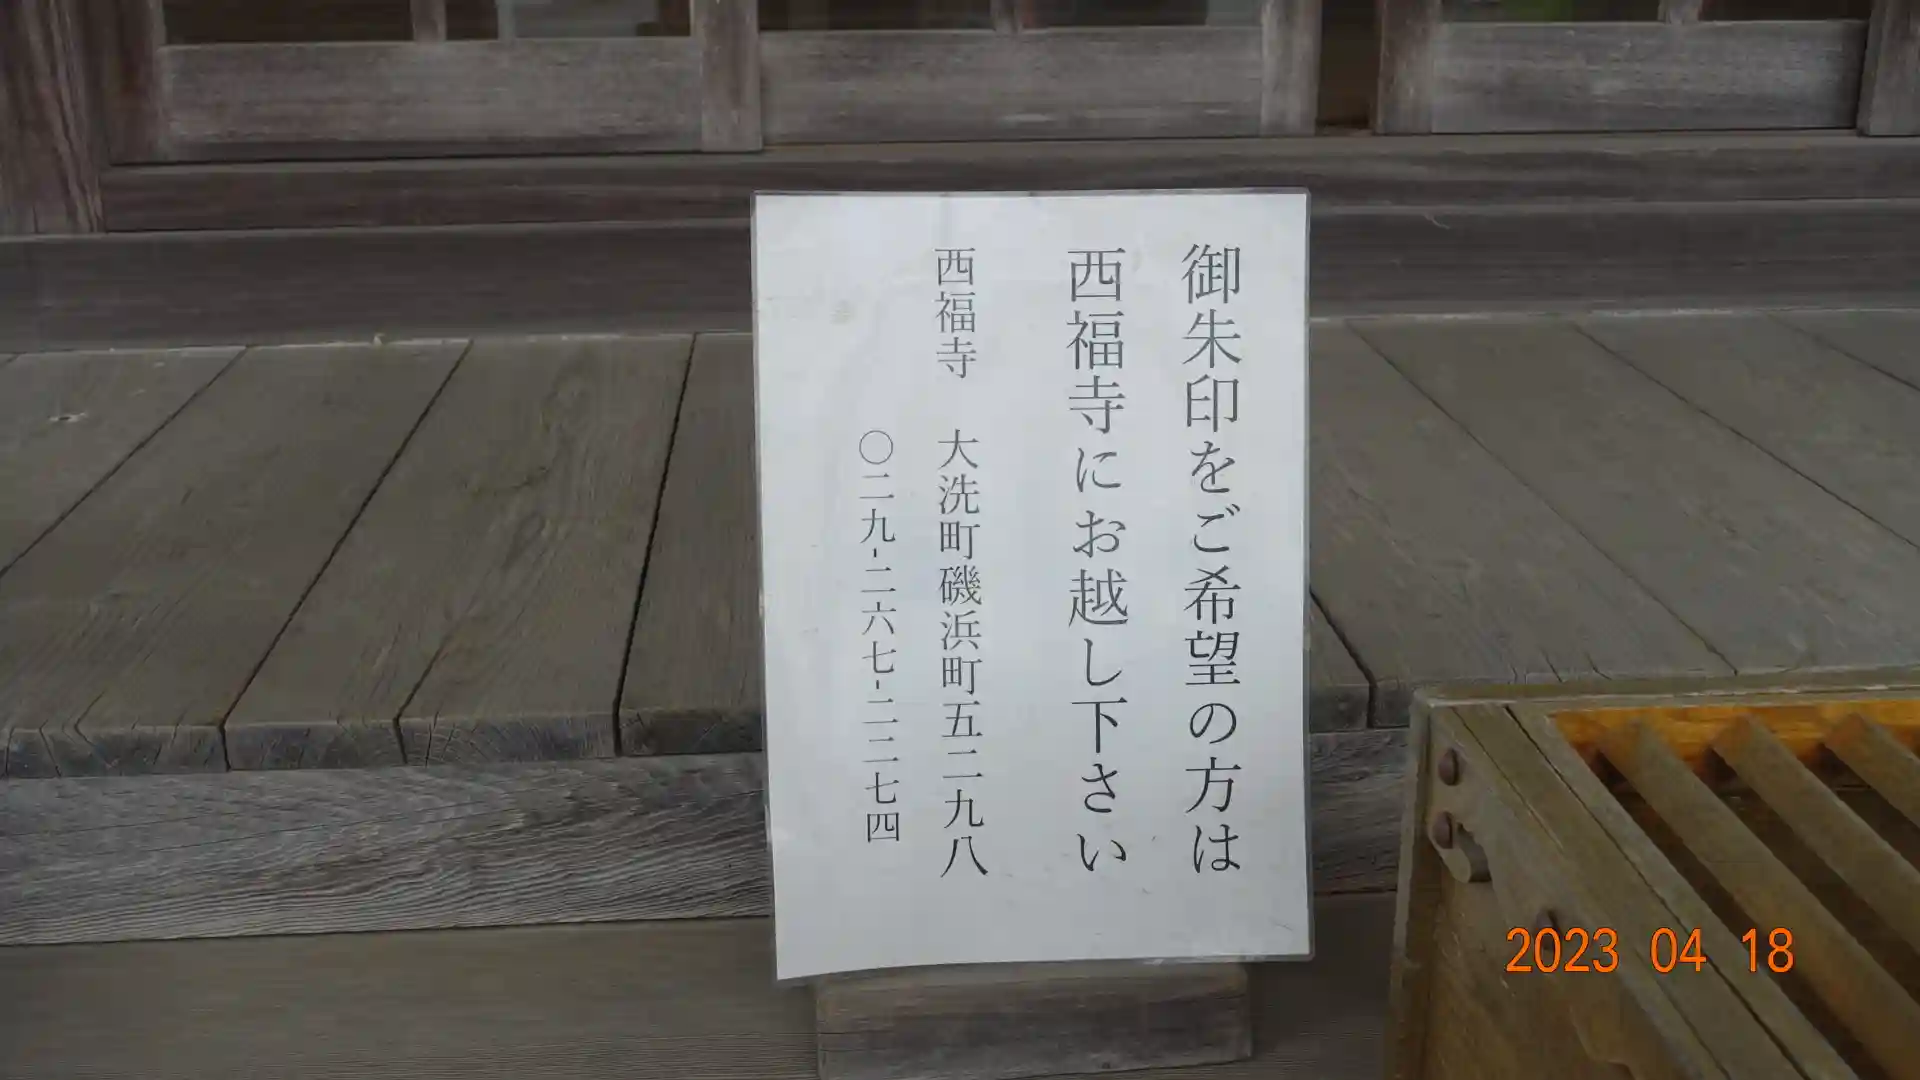 御朱印をご希望の方は
西福寺にお越し下さい
西福寺　大洗町磯浜町五二九八
〇二九-二六七-二二七四
2023 04 18